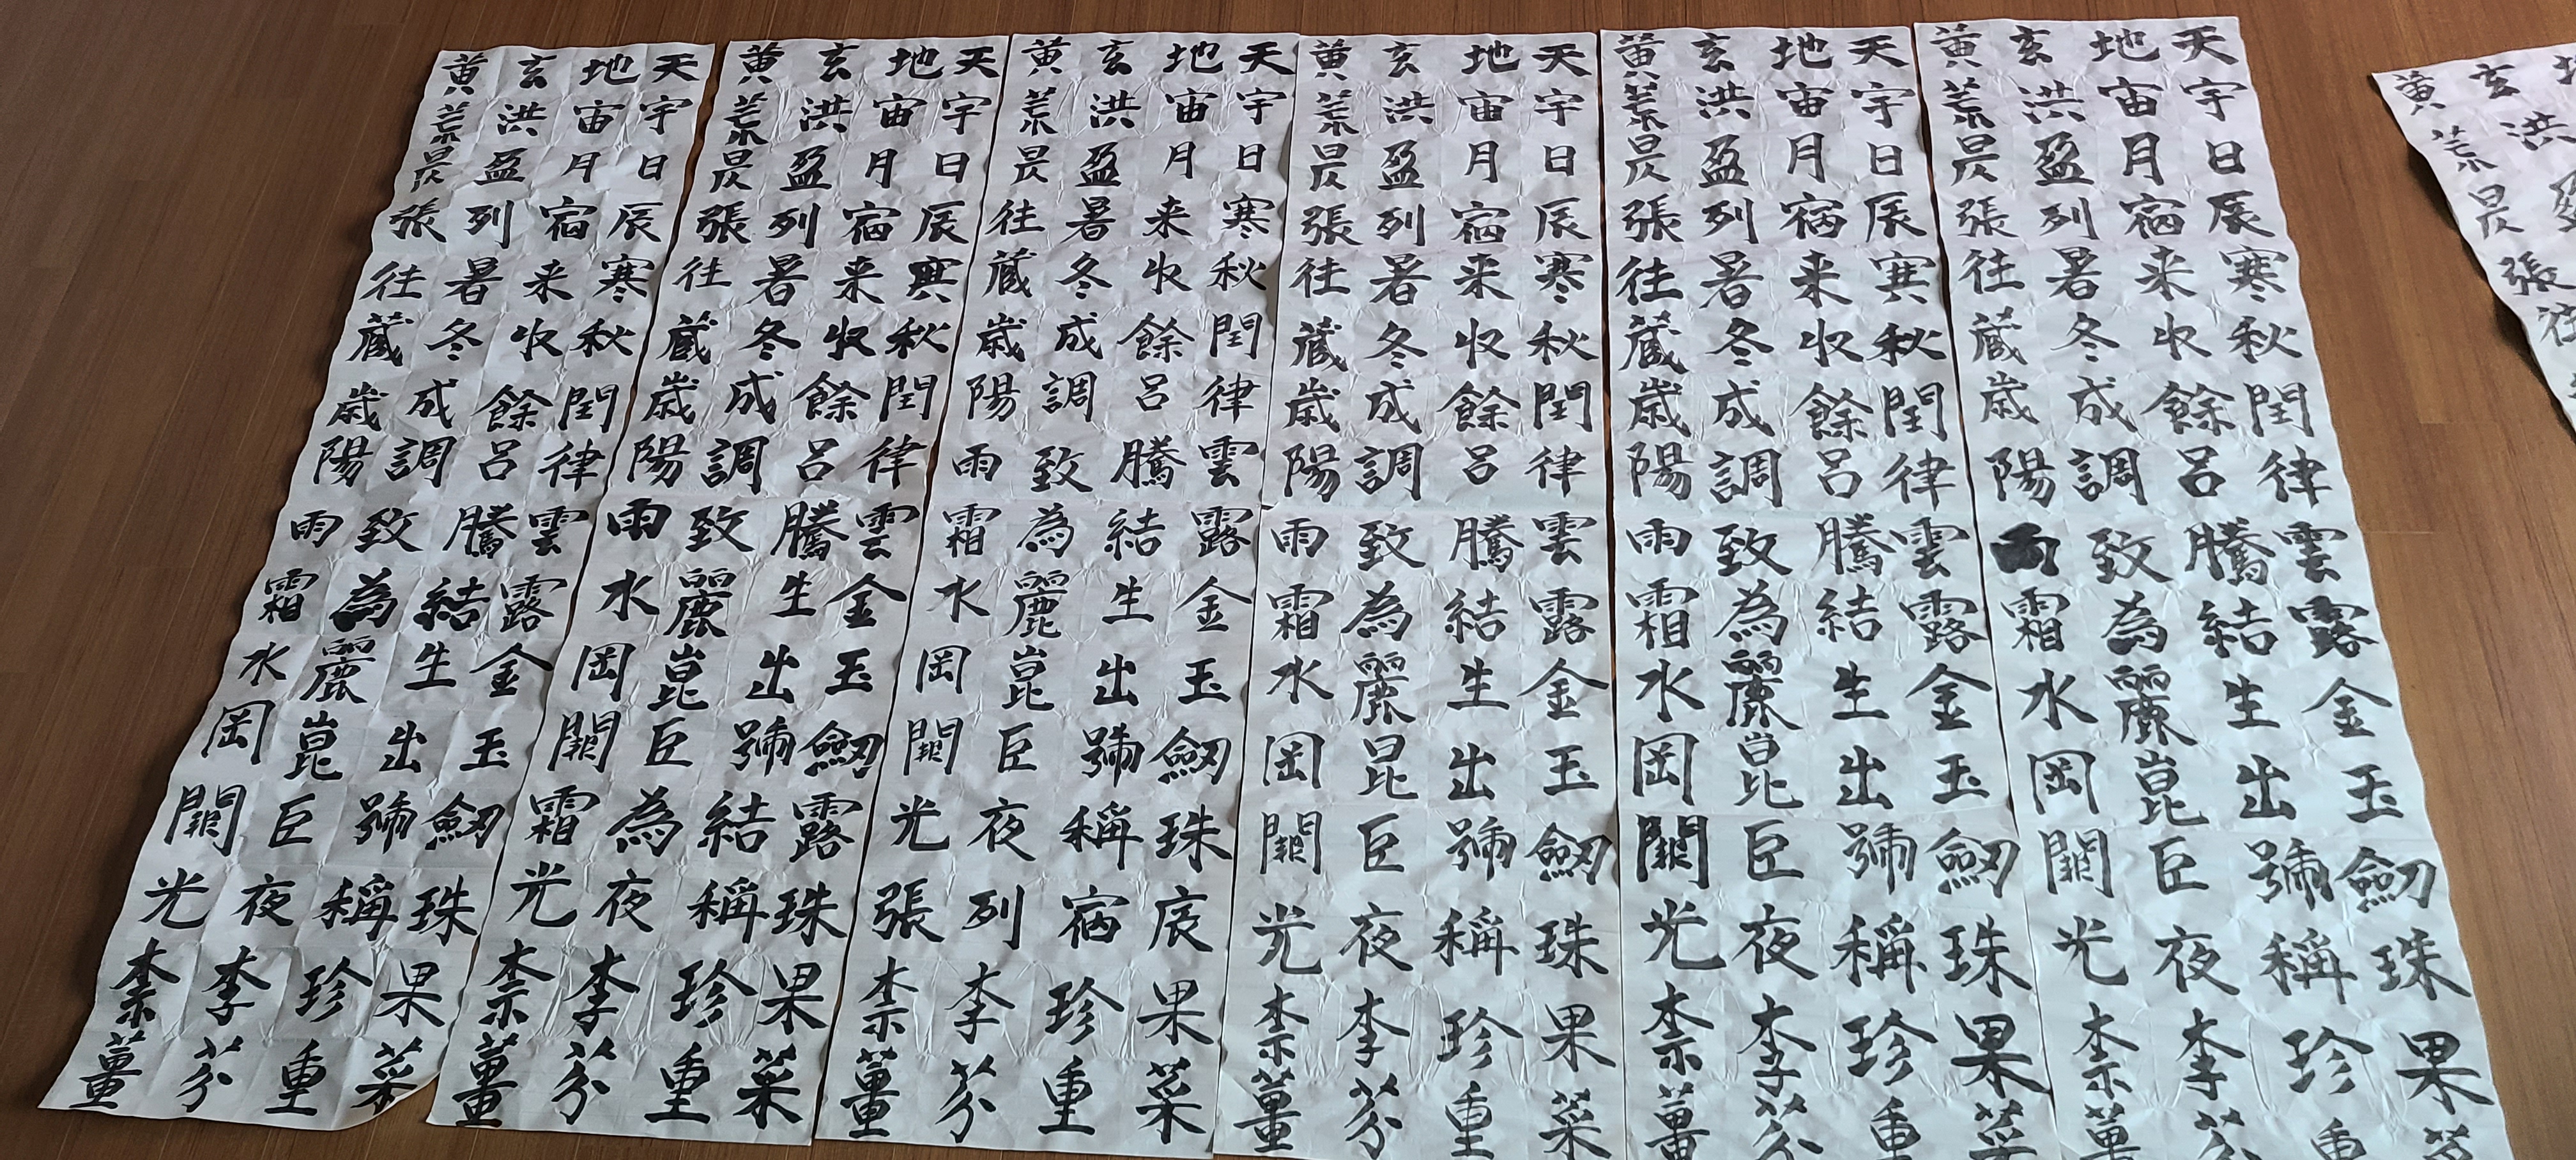 玄黄
洪荒
昃
張
往
天地玄黄
宇宙洪荒
日月盈昃
辰宿列張
寒来暑往
秋收冬蔵
閏餘成歳
律呂調陽
雲騰致雨
露結為霜
金生麗水
玉出崑岡
劔號巨闕
珠稱夜光
果珍李柰
菜重芥薑
天地玄黄
宇宙洪荒
日月盈昃
辰宿列張
寒来暑往
秋收冬蔵
閏餘成歳
律呂調陽
雲騰致雨
露結為霜
金生麗水
玉出崑岡
劔號巨闕
珠稱夜光
果珍李柰
菜重芥薑
天地玄黄
宇宙洪荒
日月盈昃
辰宿列張
寒来暑往
秋收冬蔵
閏餘成歳
律呂調陽
雲騰致雨
露結為霜
金生麗水
玉出昆岡
劔號巨闕
珠稱夜光
果珍李柰
菜重芥薑
天地玄黄
宇宙洪荒
日月盈昃
寒来暑往
秋收冬蔵
閏餘成歳
律呂調陽
雲騰致雨
露結為霜
金生麗水
玉出崑岡
劔號巨闕
珠稱夜光
辰宿列張
果珍李柰
菜重芥薑
天地玄黄
宇宙洪荒
日月盈昃
辰宿列張
寒来暑往
秋收冬蔵
閏餘成歳
律呂調陽
雲騰致雨
金生麗水
玉出崑岡
劔號巨闕
露結為霜
珠稱夜光
果珍李柰
菜重芥薑
天地玄黄
宇宙洪荒
日月盈昃
辰宿列張
寒来暑往
秋收冬蔵
閏餘成歳
律呂調陽
雲騰致雨
露結為霜
金生麗水
玉出崑岡
劔號巨闕
珠稱夜光
果珍李柰
菜重芥薑